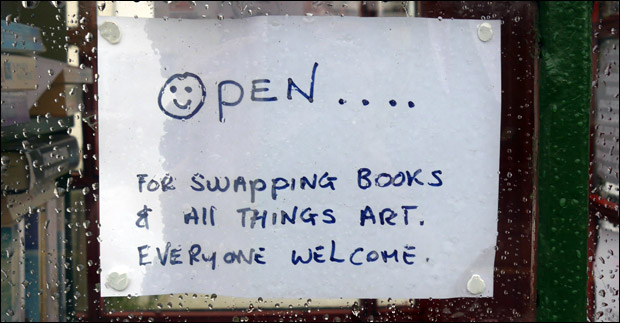 OPEN....
FOR SWAPPING BOOKS
& All THINGS ART.
EVERYONE WELCOME.